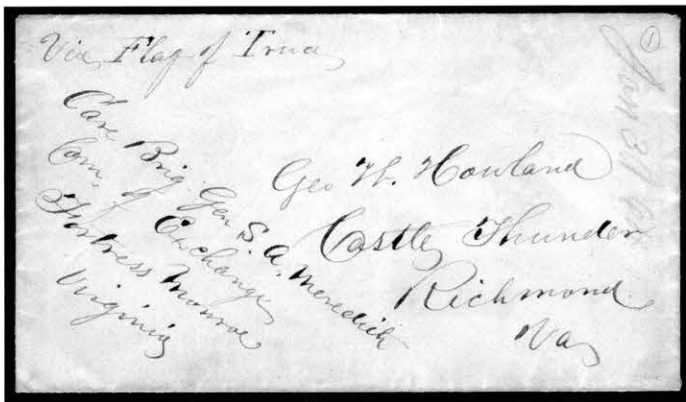 Via Flag of Truce
Care Brig. Gen S. A. Meredith
Com. of Exchange
Fortress Monroe
Virginia
Geo W. Howland
Castle Thunder
Richmond
Va
1